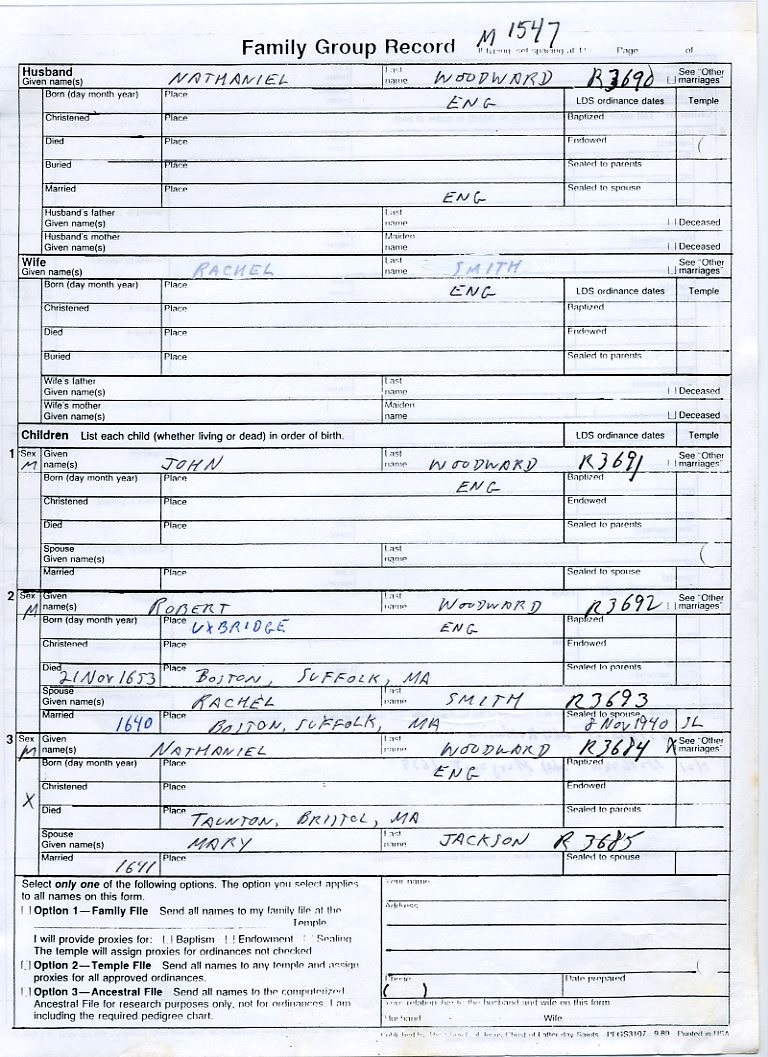 M 1547
Family Group Record If typing, set spacing at 1½. Page of
Husband
Given name(s) NATHANIEL Last name WOODWARD R3690 See "Other marriages"
Born (day month year) Place ENG LDS ordinance dates Temple
Christened Place Baptized
Died Place Endowed
Buried Place Sealed to parents
Married Place ENG Sealed to spouse
Husband's father
Given name(s) Last name Deceased
Husband's mother
Given name(s) Maiden name Deceased
Wife
Given name(s) RACHEL Last name SMITH See "Other marriages"
Born (day month year) Place ENG LDS ordinance dates Temple
Christened Place Baptized
Died Place Endowed
Buried Place Sealed to parents
Wife's father
Given name(s) Last name Deceased
Wife's mother
Given name(s) Maiden name Deceased
Children List each child (whether living or dead) in order of birth. LDS ordinance dates Temple
1 Sex M Given name(s) JOHN Last name WOODWARD R3691 See "Other marriages"
Born (day month year) Place ENG Baptized
Christened Place Endowed
Died Place Sealed to parents
Spouse
Given name(s) Last name
Married Place Sealed to spouse
2 Sex M Given name(s) ROBERT Last name WOODWARD R3692 See "Other marriages"
Born (day month year) Place UXBRIDGE ENG Baptized
Christened Place Endowed
Died 21 Nov 1653 Place BOSTON, SUFFOLK, MA Sealed to parents
Spouse
Given name(s) RACHEL Last name SMITH R3693
Married 1640 Place BOSTON, SUFFOLK, MA Sealed to spouse 8 Nov 1940 SL
3 Sex M Given name(s) NATHANIEL Last name WOODWARD R3684 X See "Other marriages"
Born (day month year) Place ENG Baptized
Christened Place Endowed
X
Died Place TAUNTON, BRISTOL, MA Sealed to parents
Spouse
Given name(s) MARY Last name JACKSON R3685
Married 1641 Place Sealed to spouse
Select only one of the following options. The option you select applies
to all names on this form.
Option 1—Family File Send all names to my family file at the
Temple.
I will provide proxies for: Baptism Endowment Sealing
The temple will assign proxies for ordinances not checked
Option 2—Temple File Send all names to any temple and assign
proxies for all approved ordinances.
Option 3—Ancestral File Send all names to the computerized
Ancestral File for research purposes only, not for ordinances. I am
including the required pedigree chart.
Your name
Address
Phone
( )
Date prepared
Your relationship to the husband and wife on this form
Husband Wife
Published by The Church of Jesus Christ of Latter-day Saints PFGS3107 9/89 Printed in USA